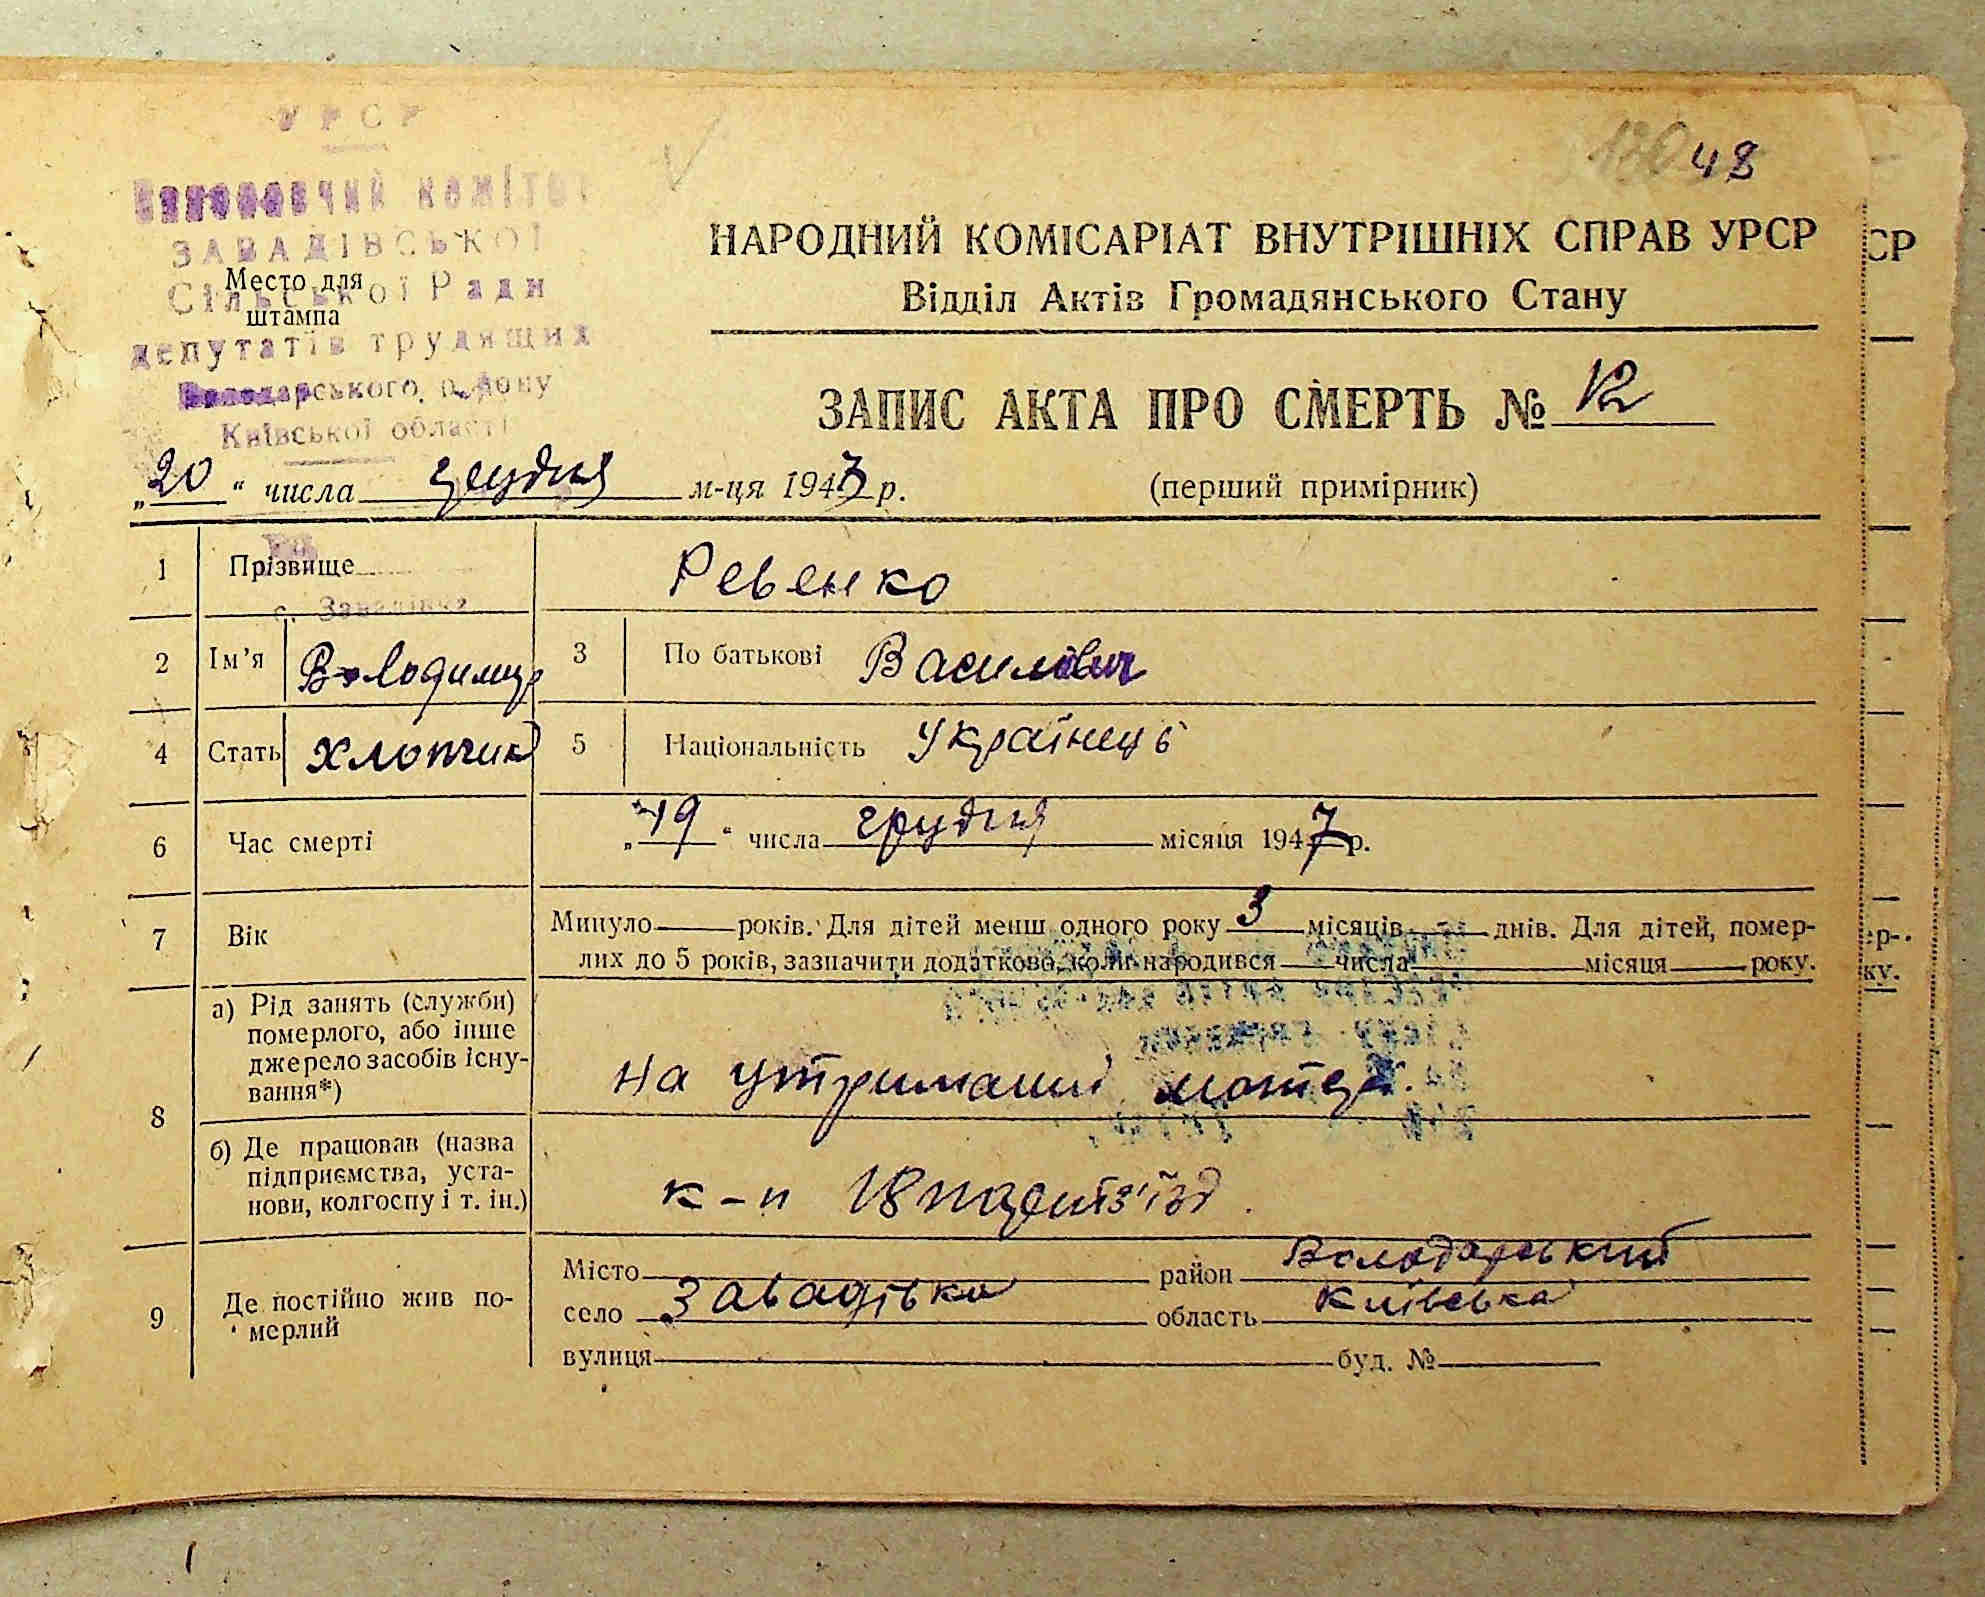 УРСР
Виконавчий комітет
ЗАВАДІВСЬКОЇ
Сільської Ради
депутатів трудящих
Володарського району
Київської області
Место для
штампа
с. Завадівка
48
НАРОДНИЙ КОМІСАРІАТ ВНУТРІШНІХ СПРАВ УРСР
Відділ Актів Громадянського Стану
ЗАПИС АКТА ПРО СМЕРТЬ № 12
„20“ числа грудня м-ця 1947 р. (перший примірник)
1 Прізвище Ревенко
2 Ім’я Володимир 3 По батькові Василович
4 Стать хлопчик 5 Національність Українець
6 Час смерті „19“ числа грудня місяця 1947 р.
7 Вік Минуло років. Для дітей менш одного року 3 місяців днів. Для дітей, помер-
лих до 5 років, зазначити додатково, коли народився числа місяця року.
8 а) Рід занять (служби)
померлого, або інше
джерело засобів існу-
вання*)
На утриманні матері.
б) Де працював (назва
підприємства, уста-
нови, колгоспу і т. ін.)
к-п 18 партз'їзд.
9 Де постійно жив по-
мерлий
Місто район Володарський
село Завадівка область Київська
вулиця буд. №
СР
ер-
ку.